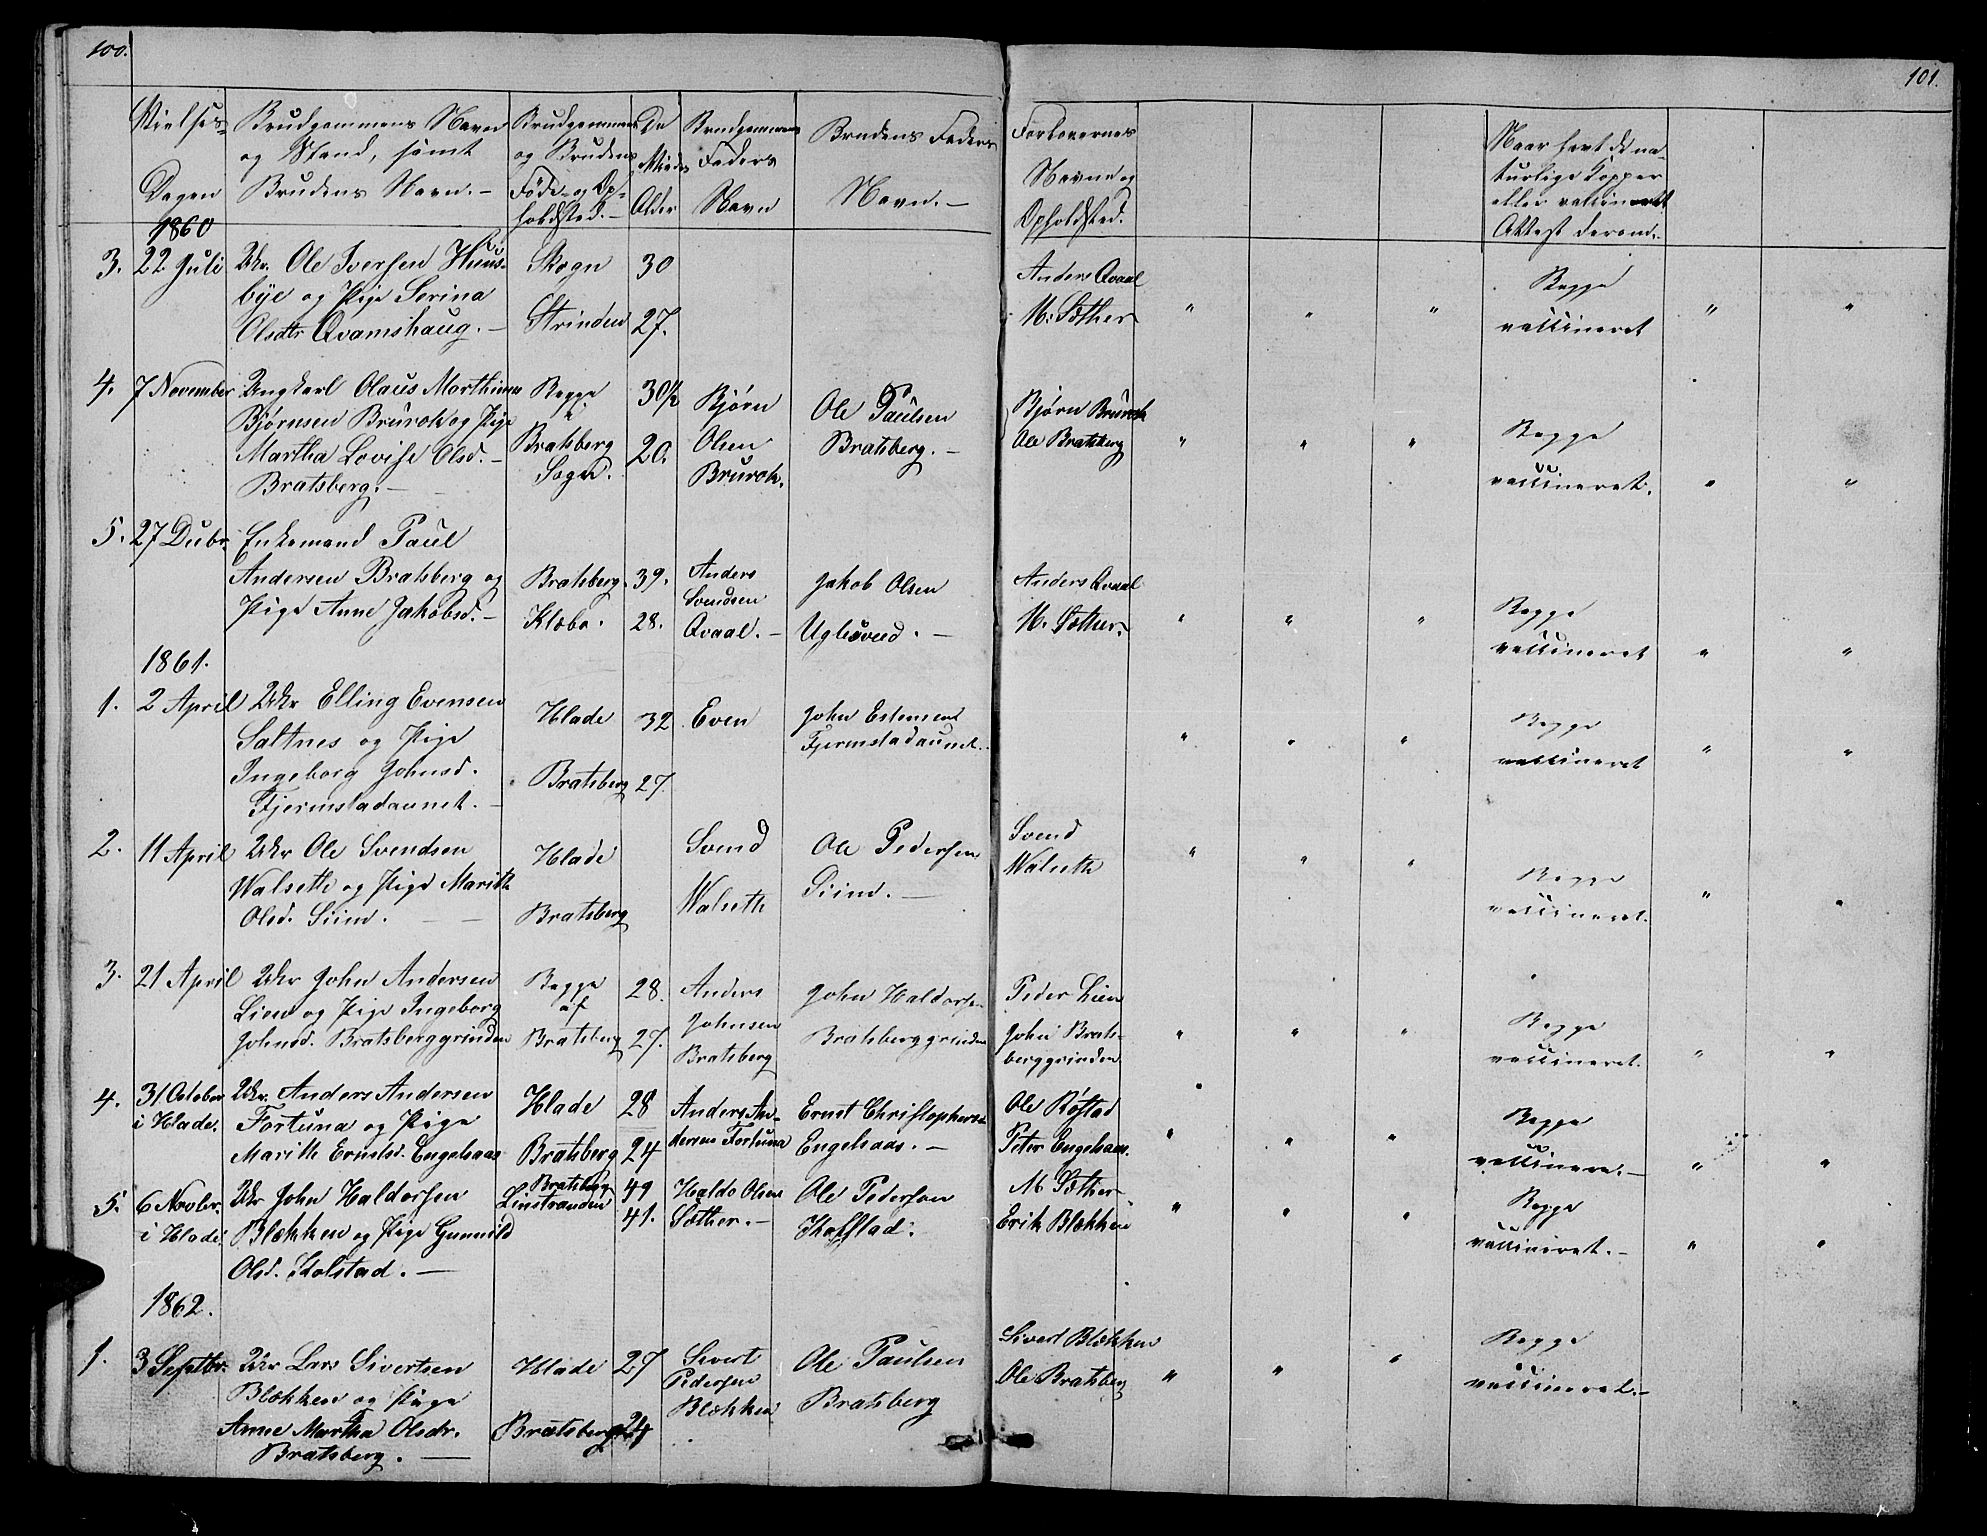 100.
101.
Vielses-
Dagen
1860
Brudgommens Navn
og Stand, samt
Brudens Navn. -
Brudgommens
og Brudens
Føde- og Op-
holdsted. -
De
Viedes
Alder
Brudgommens
Faders
Navn
Brudens Faders
Navn. -
Forlovernes
Navne og
Opholdsted.
Naar havt de na-
turlige Kopper
eller vaccineret
Attest derom.
3. 22 Juli
Ukr. Ole Iversen Huus-
bye og Pige Serina
Olsdtr Qvamshaug. -
Skogn
Strinden
30
27.
Anders Qvaal
M. Sæther
" " "
Begge
vaccineret
" "
4. 7 November
Ungkarl Olaus Marthinus
Bjørnsen Brurok og Pige
Martha Lovise Olsd. -
Bratsberg. -
Begge
i
Bratsberg
Sogn.
30½
20.
Bjørn
Olsen
Brurok.
Ole Paulsen
Bratsberg. -
Bjørn Brurok
Ole Bratsberg
" " "
Begge
vaccineret.
" "
5. 27 Decbr.
Enkemand Paul
Andersen Bratsberg og
Pige Anne Jakobsd. -
Bratsberg.
Klæbo.
39.
28.
Anders
Svendsen
Qvaal. -
Jakob Olsen
Uglesvend. -
Anders Qvaal
M. Sæther.
" " "
Begge
vaccineret
" "
1861.
1. 2 April
Ukr Elling Evensen
Saltnes og Pige
Ingeborg Johnsd.
Fjermstadaunet. -
Hlade
Bratsberg
32
27.
Even
John Estensen
Fjermstadaunet.
" " "
Begge
vaccineret
" "
2. 11 April
Ukr Ole Svendsen
Walseth og Pige Marith
Olsd. Siim. - -
Hlade
Bratsberg
Svend
Walseth
Ole Pedersen
Siim. -
Svend
Walseth
" " "
Begge
vaccineret.
" "
3. 21 April
Ukr John Andersen
Lien og Pige Ingeborg
Johnsd. Bratsberggrinden
Begge
af
Bratsberg
28.
27.
Anders
Johnsen
Bratsberg
John Haldorsen
Bratsberggrinden
Peder Lien
John Brats-
berggrinden
" " "
Begge
vaccineret.
" "
4. 31 October
i Hlade.
Ukr. Anders Andersen
Fortuna og Pige
Marith Ernstsd. Engelsaas
Hlade
Bratsberg
28
24
Anders An-
dersen Fortuna
Ernst Christophersen
Engelsaas. -
Ole Røstad
Peter Engelsaas.
" " "
Begge
vaccinere. -
" "
5. 6 Novbr.
i Hlade.
Ukr John Haldorsen
Blekken og Pige Gunnild
Olsd. Kolstad. -
Bratsberg
Linstranden
49
41.
Haldo Olsen
Sæther. -
Ole Pedersen
Kolstad.
M Sæther
Erik Blekken
" " "
Begge
vaccineret. -
" "
1862.
1. 3 Septbr.
Ukr Lars Sivertsen
Blekken og Pige
Anne Martha Olsdr.
Bratsberg. -
Hlade
Bratsberg
27
24
Sivert
Pedersen
Blekken
Ole Paulsen
Bratsberg
Sivert Blekken
Ole Bratsberg
" " "
Begge
vaccineret. -